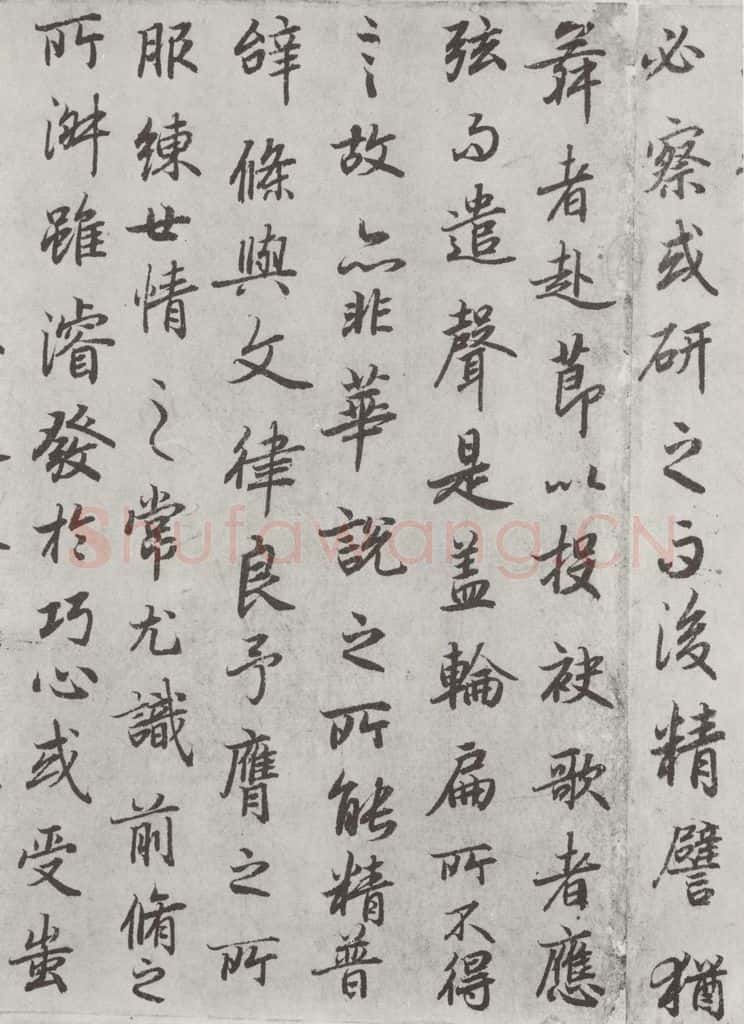 必察或研之而後精譬猶
舞者赴節以投袂歌者應
弦而遣聲是盖輪扁所不得
言故亦非華說之所能精普
辝條與文律良予膺之所
服練世情之常尤識前脩之
所淑雖濬發於巧心或受蚩
Shufawang.CN